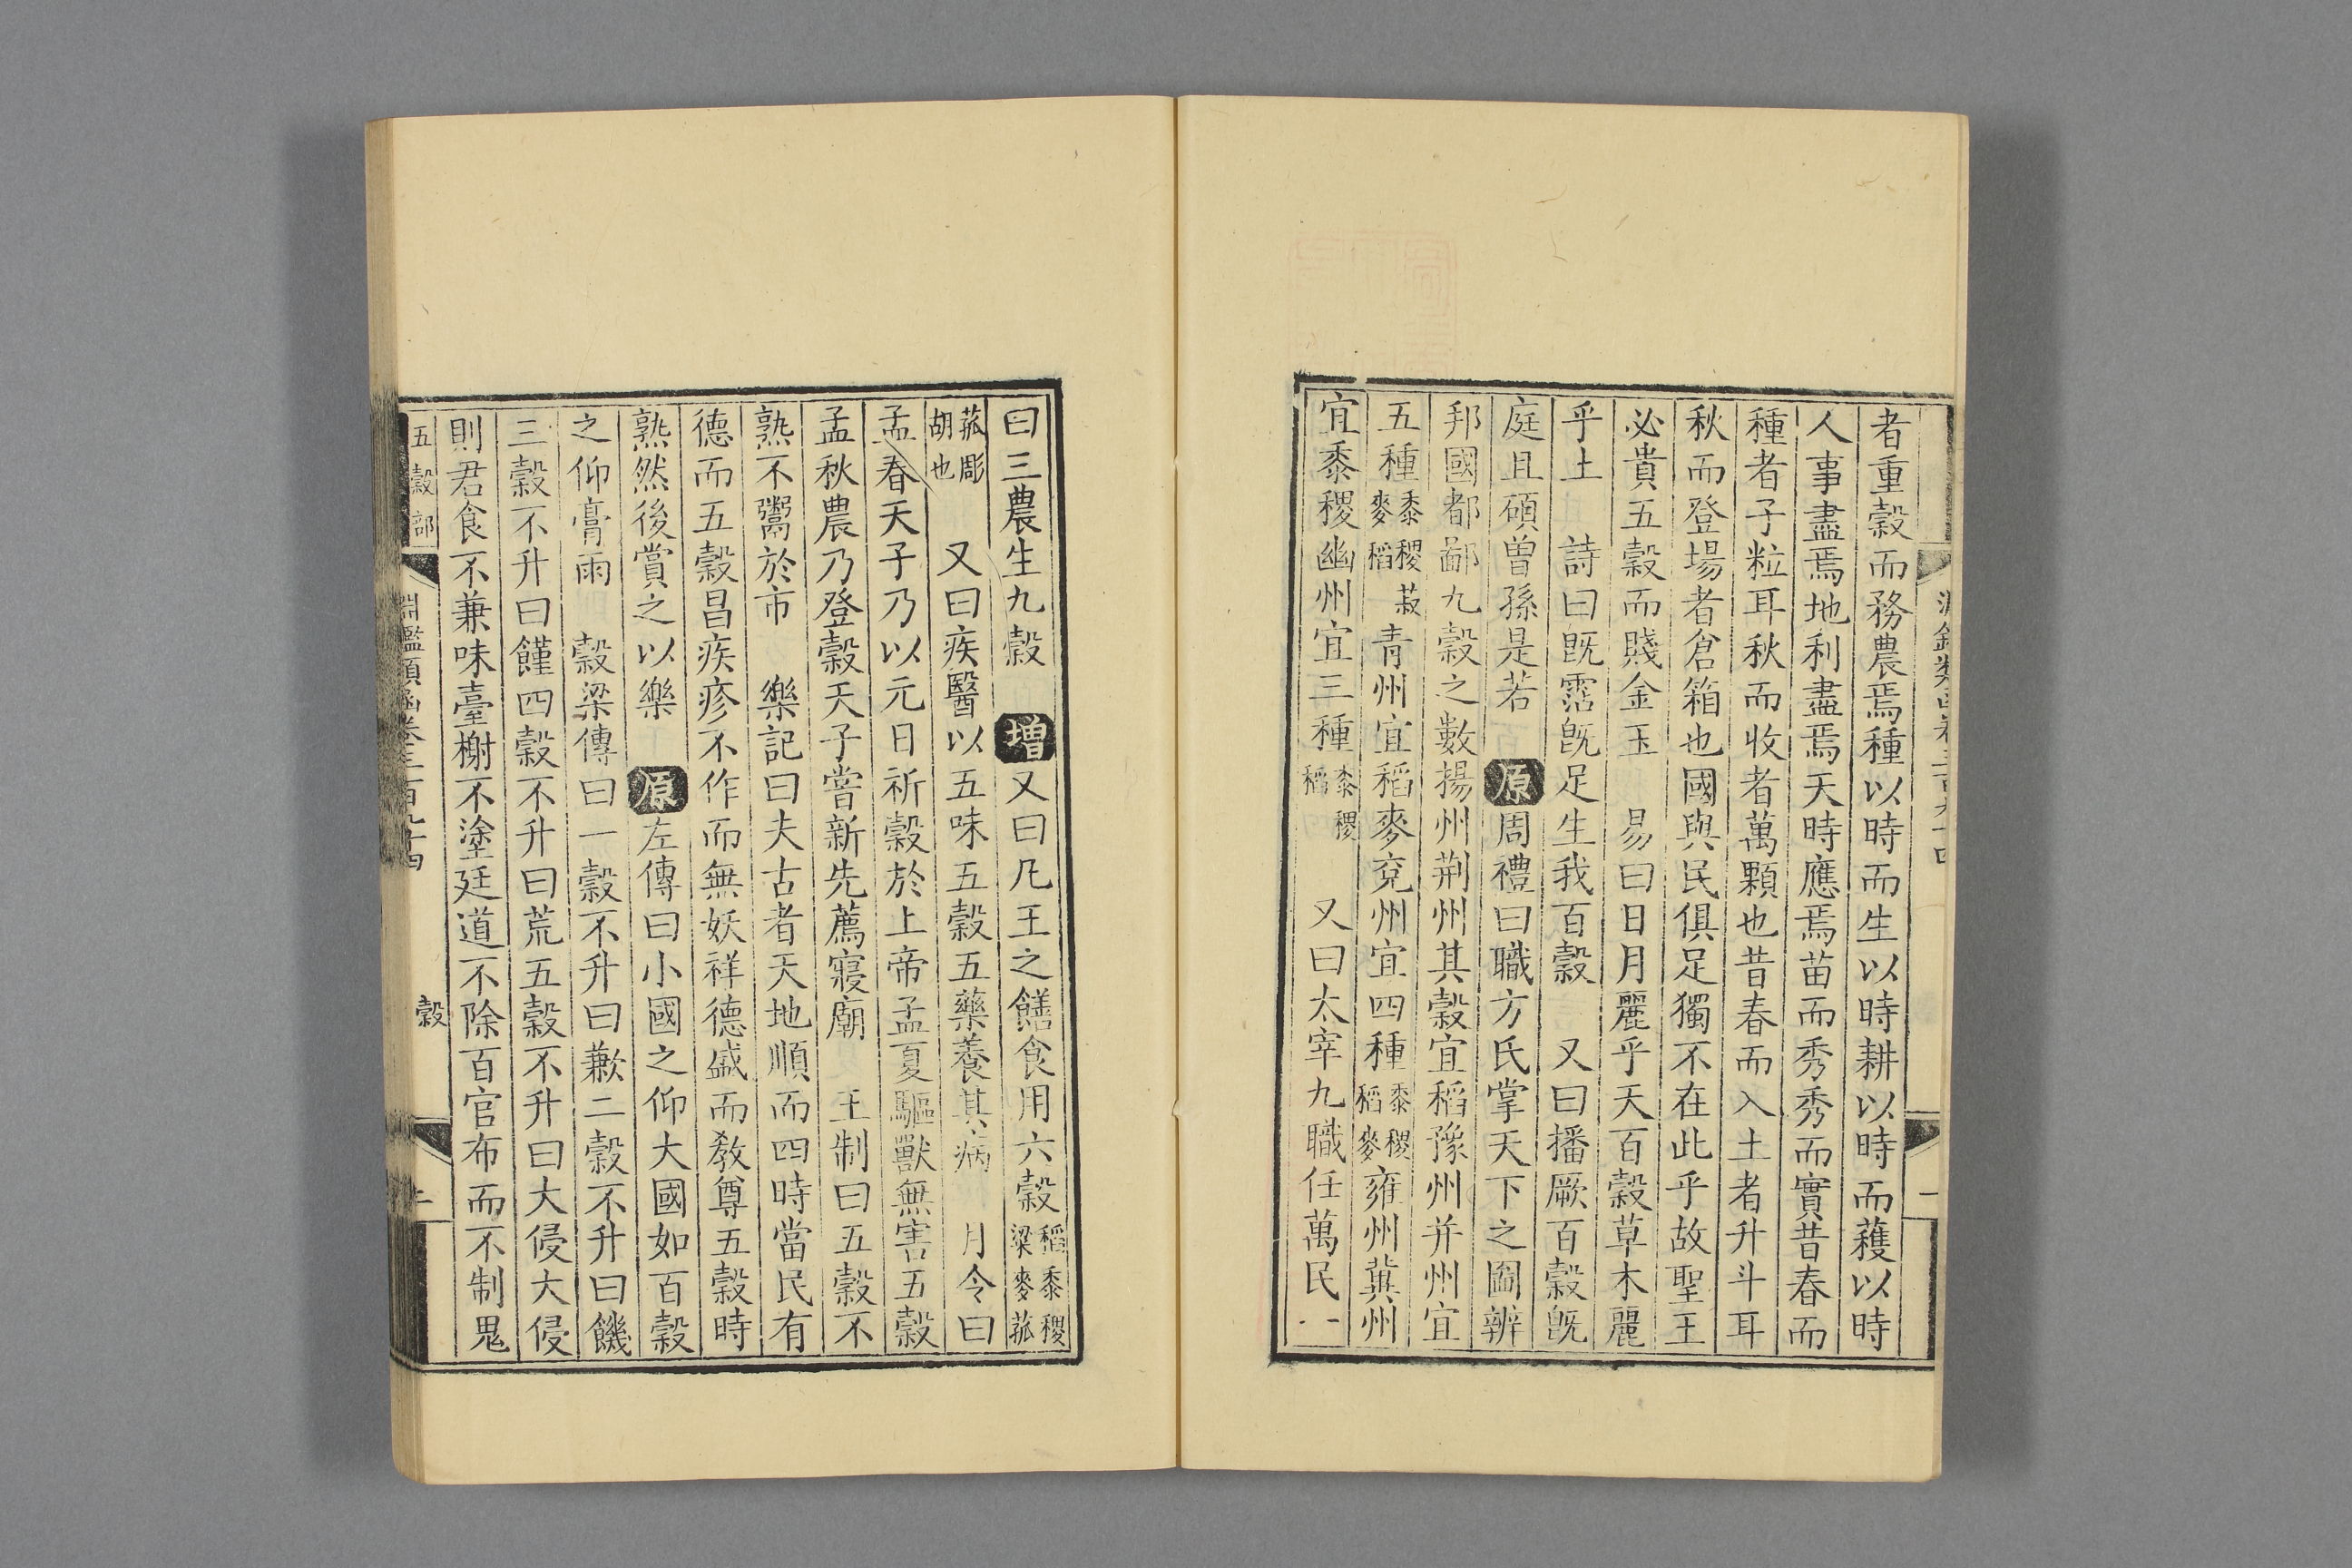 者重穀而務農焉種以時而生以時耕以時而穫以時
人事盡焉地利盡焉天時應焉苗而秀秀而實昔春而
種者子粒耳秋而收者萬顆也昔春而入土者升斗耳
秋而登場者倉箱也國與民俱足獨不在此乎故聖王
必貴五穀而賤金玉 易曰日月麗乎天百穀草木麗
乎土 詩曰既霑既足生我百穀 又曰播厥百穀既
庭且碩曾孫是若 原周禮曰職方氏掌天下之圖辨
邦國都鄙九穀之數揚州荆州其穀宜稻豫州并州宜
五種黍稷菽麥稻青州宜稻麥兗州宜四種黍稷稻麥雍州冀州
宜黍稷幽州宜三種黍稷稻 又曰太宰九職任萬民一
曰三農生九穀 增又曰凡王之饍食用六穀稻黍稷粱麥菰
菰彫胡也 又曰疾醫以五味五穀五藥養其病 月令曰
孟春天子乃以元日祈穀於上帝孟夏驅獸無害五穀
孟秋農乃登穀天子嘗新先薦寢廟 王制曰五穀不
熟不鬻於市 樂記曰夫古者天地順而四時當民有
德而五穀昌疾疹不作而無妖祥德盛而教尊五穀時
熟然後賞之以樂 原左傳曰小國之仰大國如百穀
之仰膏雨 穀梁傳曰一穀不升曰歉二穀不升曰饑
三穀不升曰饉四穀不升曰荒五穀不升曰大侵大侵
則君食不兼味臺榭不塗廷道不除百官布而不制鬼
五穀部 淵鑑類函卷三百九十四 穀 二